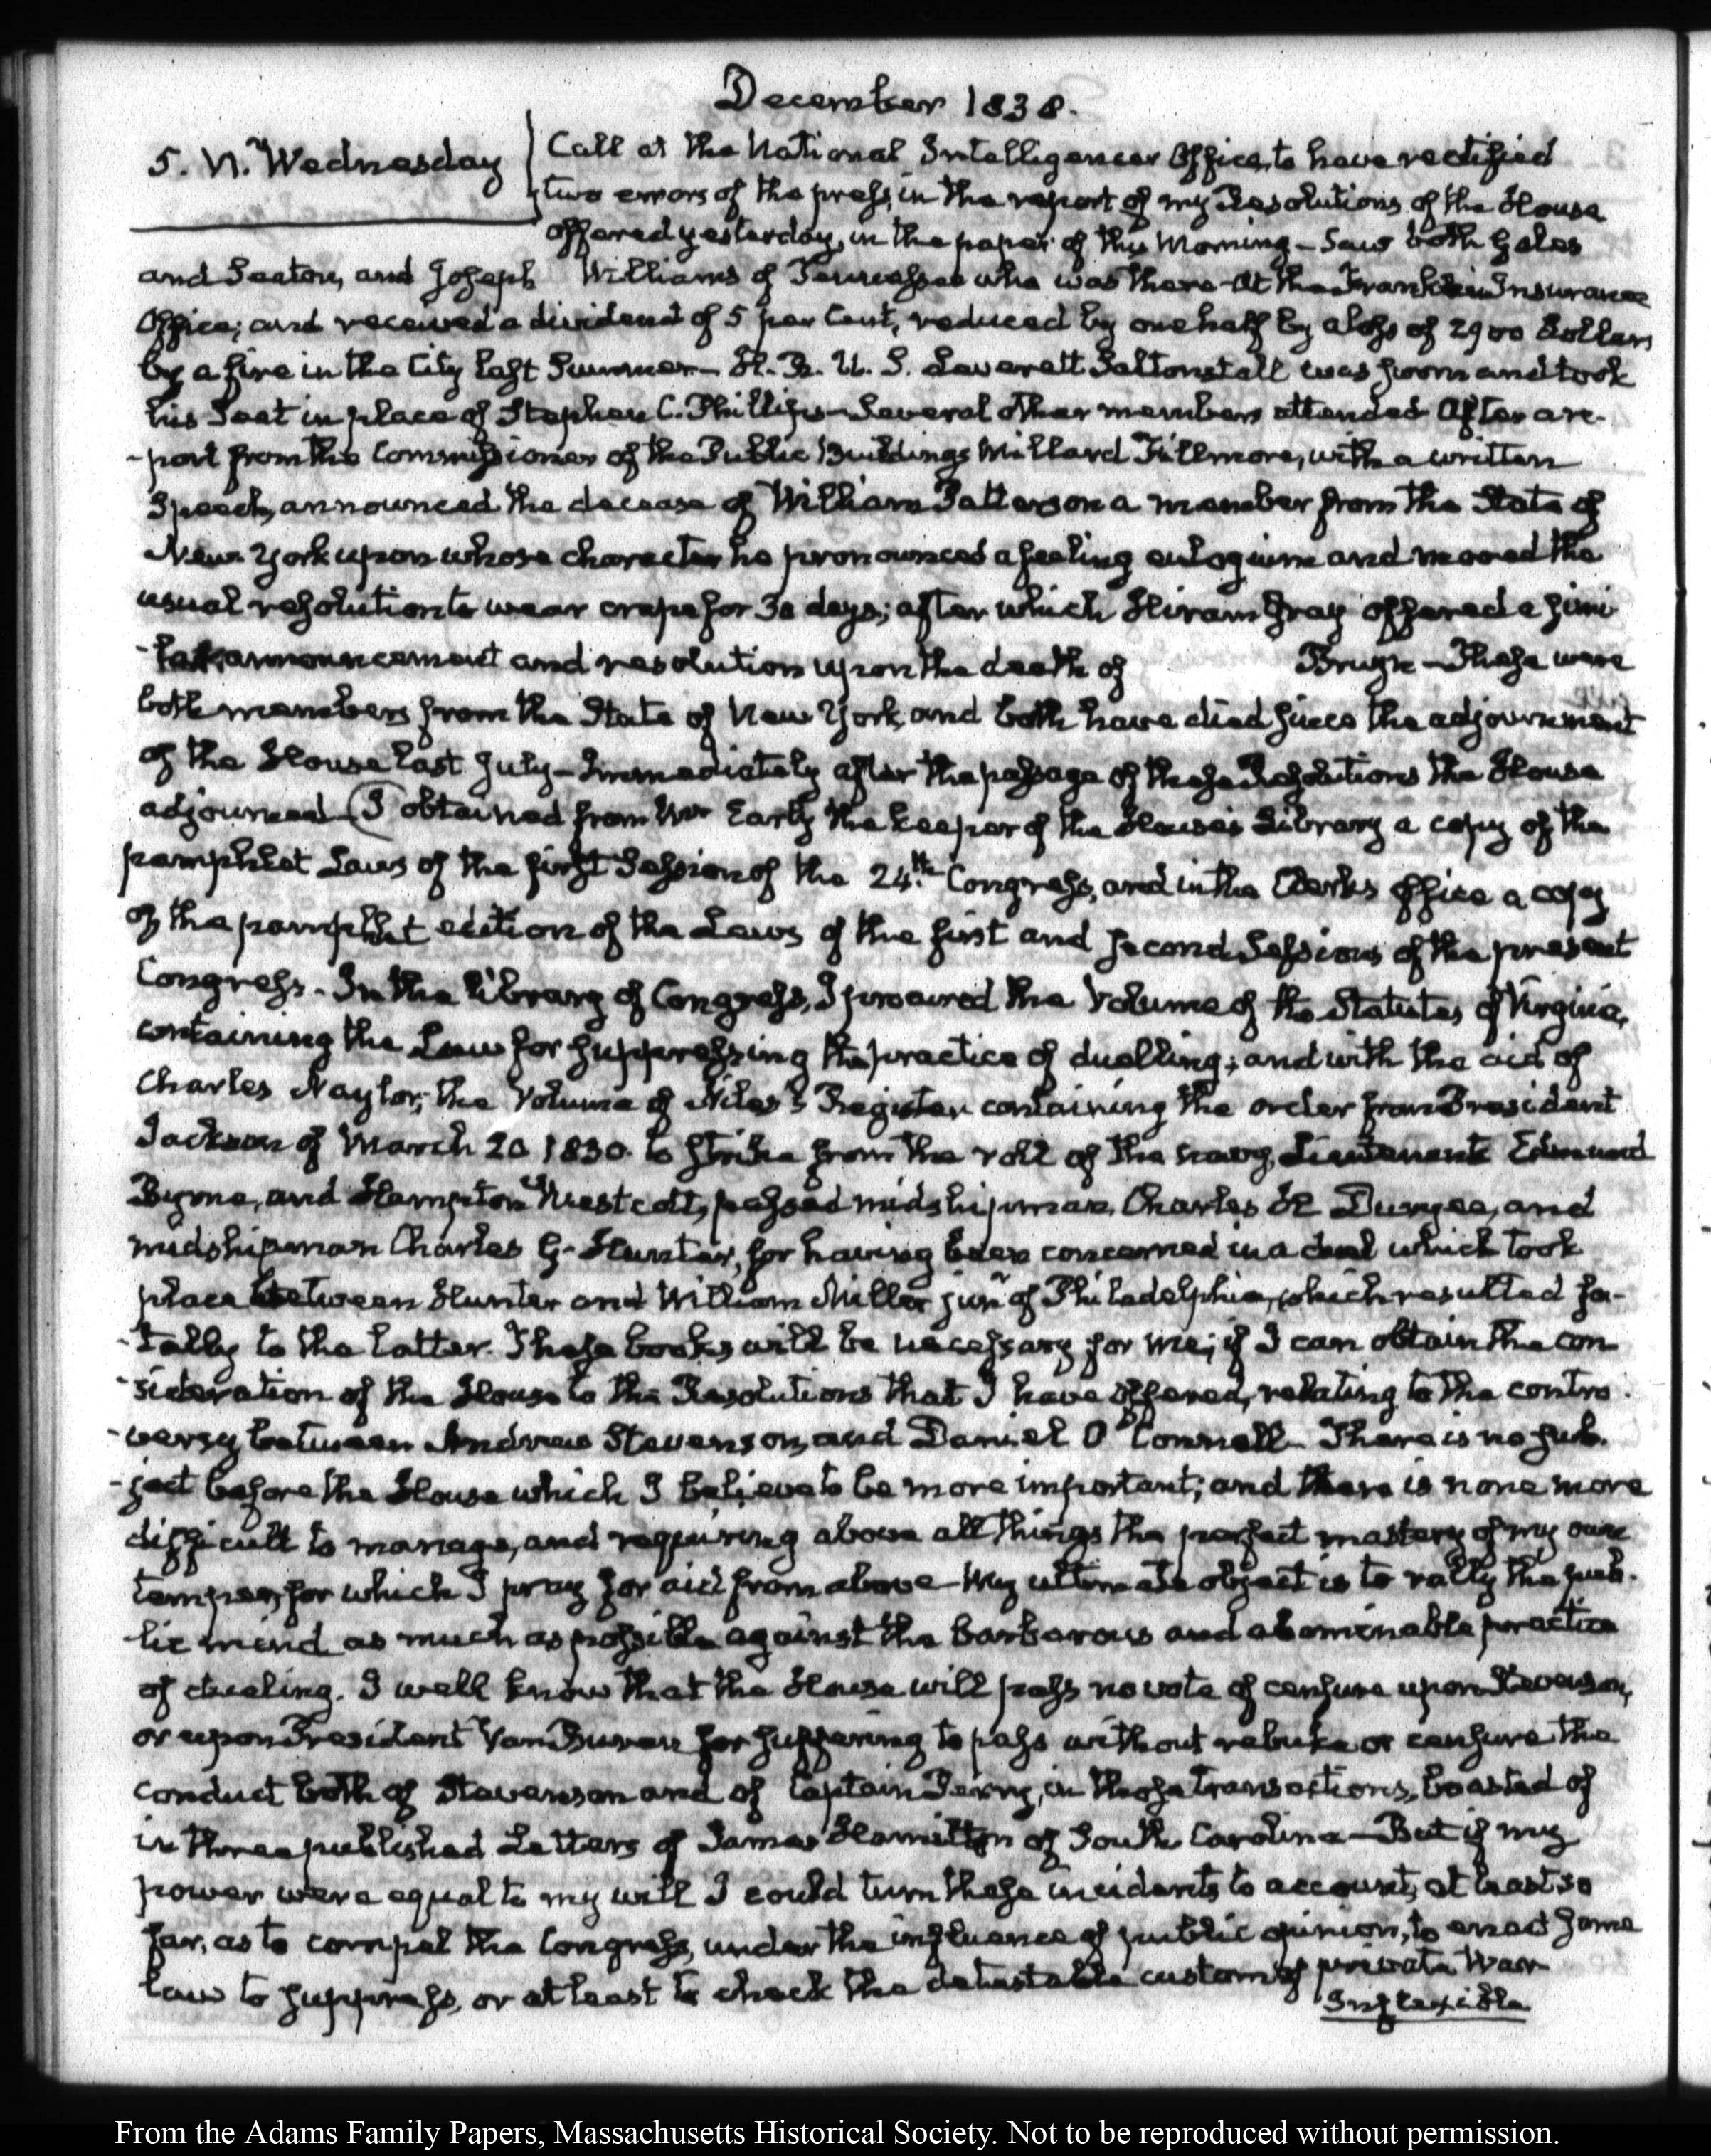 December 1838.
5. IV. Wednesday
Call at the National Intelligencer Office, to have rectified
two errors of the press, in the report of my Resolutions of the House
offered yesterday, in the paper of this Morning – Saw both Gales
and Seaton, and Joseph Williams of Tennessee who was there – At the Franklin Insurance
Office; and received a dividend of 5 per Cent, reduced by one half by a loss of 2900 Dollars
by a fire in the City last Summer – H. R. U. S. Leverett Saltonstall was sworn and took
his Seat in place of Stephen C. Phillips – Several other members attended After a re-
-port from the Commissioner of the Public Buildings Millard Fillmore, with a written
Speech, announced the decease of William Patterson a member from the State of
New-York upon whose character he pronounced a feeling eulogium and moved the
usual resolution to wear crape for 30 days; after which Hiram Gray offered a simi
-lar announcement and resolution upon the death of Bruyn – These were
both members from the State of New York, and both have died since the adjournment
of the House last July – Immediately after the passage of these Resolutions the House
adjourned – I obtained from Mr Early the keeper of the House's Library a copy of the
pamphlet Laws of the first Session of the 24.th Congress, and in the Clerks office a copy
of the pamphlet edition of the Laws of the first and second Sessions of the present
Congress – In the library of Congress, I procured the Volume of the Statutes of Virginia,
containing the Law for suppressing the practice of duelling; and with the aid of
Charles Naylor, the Volume of Niles's Register containing the order from President
Jackson of March 20 1830. to strike from the roll of the navy, Lieutenants Edmund
Byrne, and Hampton Westcott, passed midshipman, Charles H Duryee, and
midshipman Charles G. Hunter, for having been concerned in a duel which took
place between Hunter and William Miller junr of Philadelphia, which resulted fa-
-tally to the latter. These books will be necessary for me; if I can obtain the con
-sideration of the House to the Resolutions that I have offered, relating to the contro
-versy between Andrew Stevenson, and Daniel O'Connell – There is no sub-
-ject before the House which I believe to be more important; and there is none more
difficult to manage, and requiring above all things the perfect mastery of my own
temper, for which I pray for aid from above – My ultimate object is to rally the pub-
-lic mind as much as possible against the barbarous and abominable practice
of dueling. I well know that the House will pass no vote of censure upon Stevenson,
or upon President Van Buren for suffering to pass without rebuke or censure the
conduct both of Stevenson and of Captain Perry, in those transactions, boasted of
in three published Letters of James Hamilton of South Carolina – But if my
power were equal to my will I could turn these incidents to account, at least so
far, as to compel the Congress, under the influence of public opinion, to enact some
law to suppress, or at least to check the detestable custom of private War
Inflexible
From the Adams Family Papers, Massachusetts Historical Society. Not to be reproduced without permission.